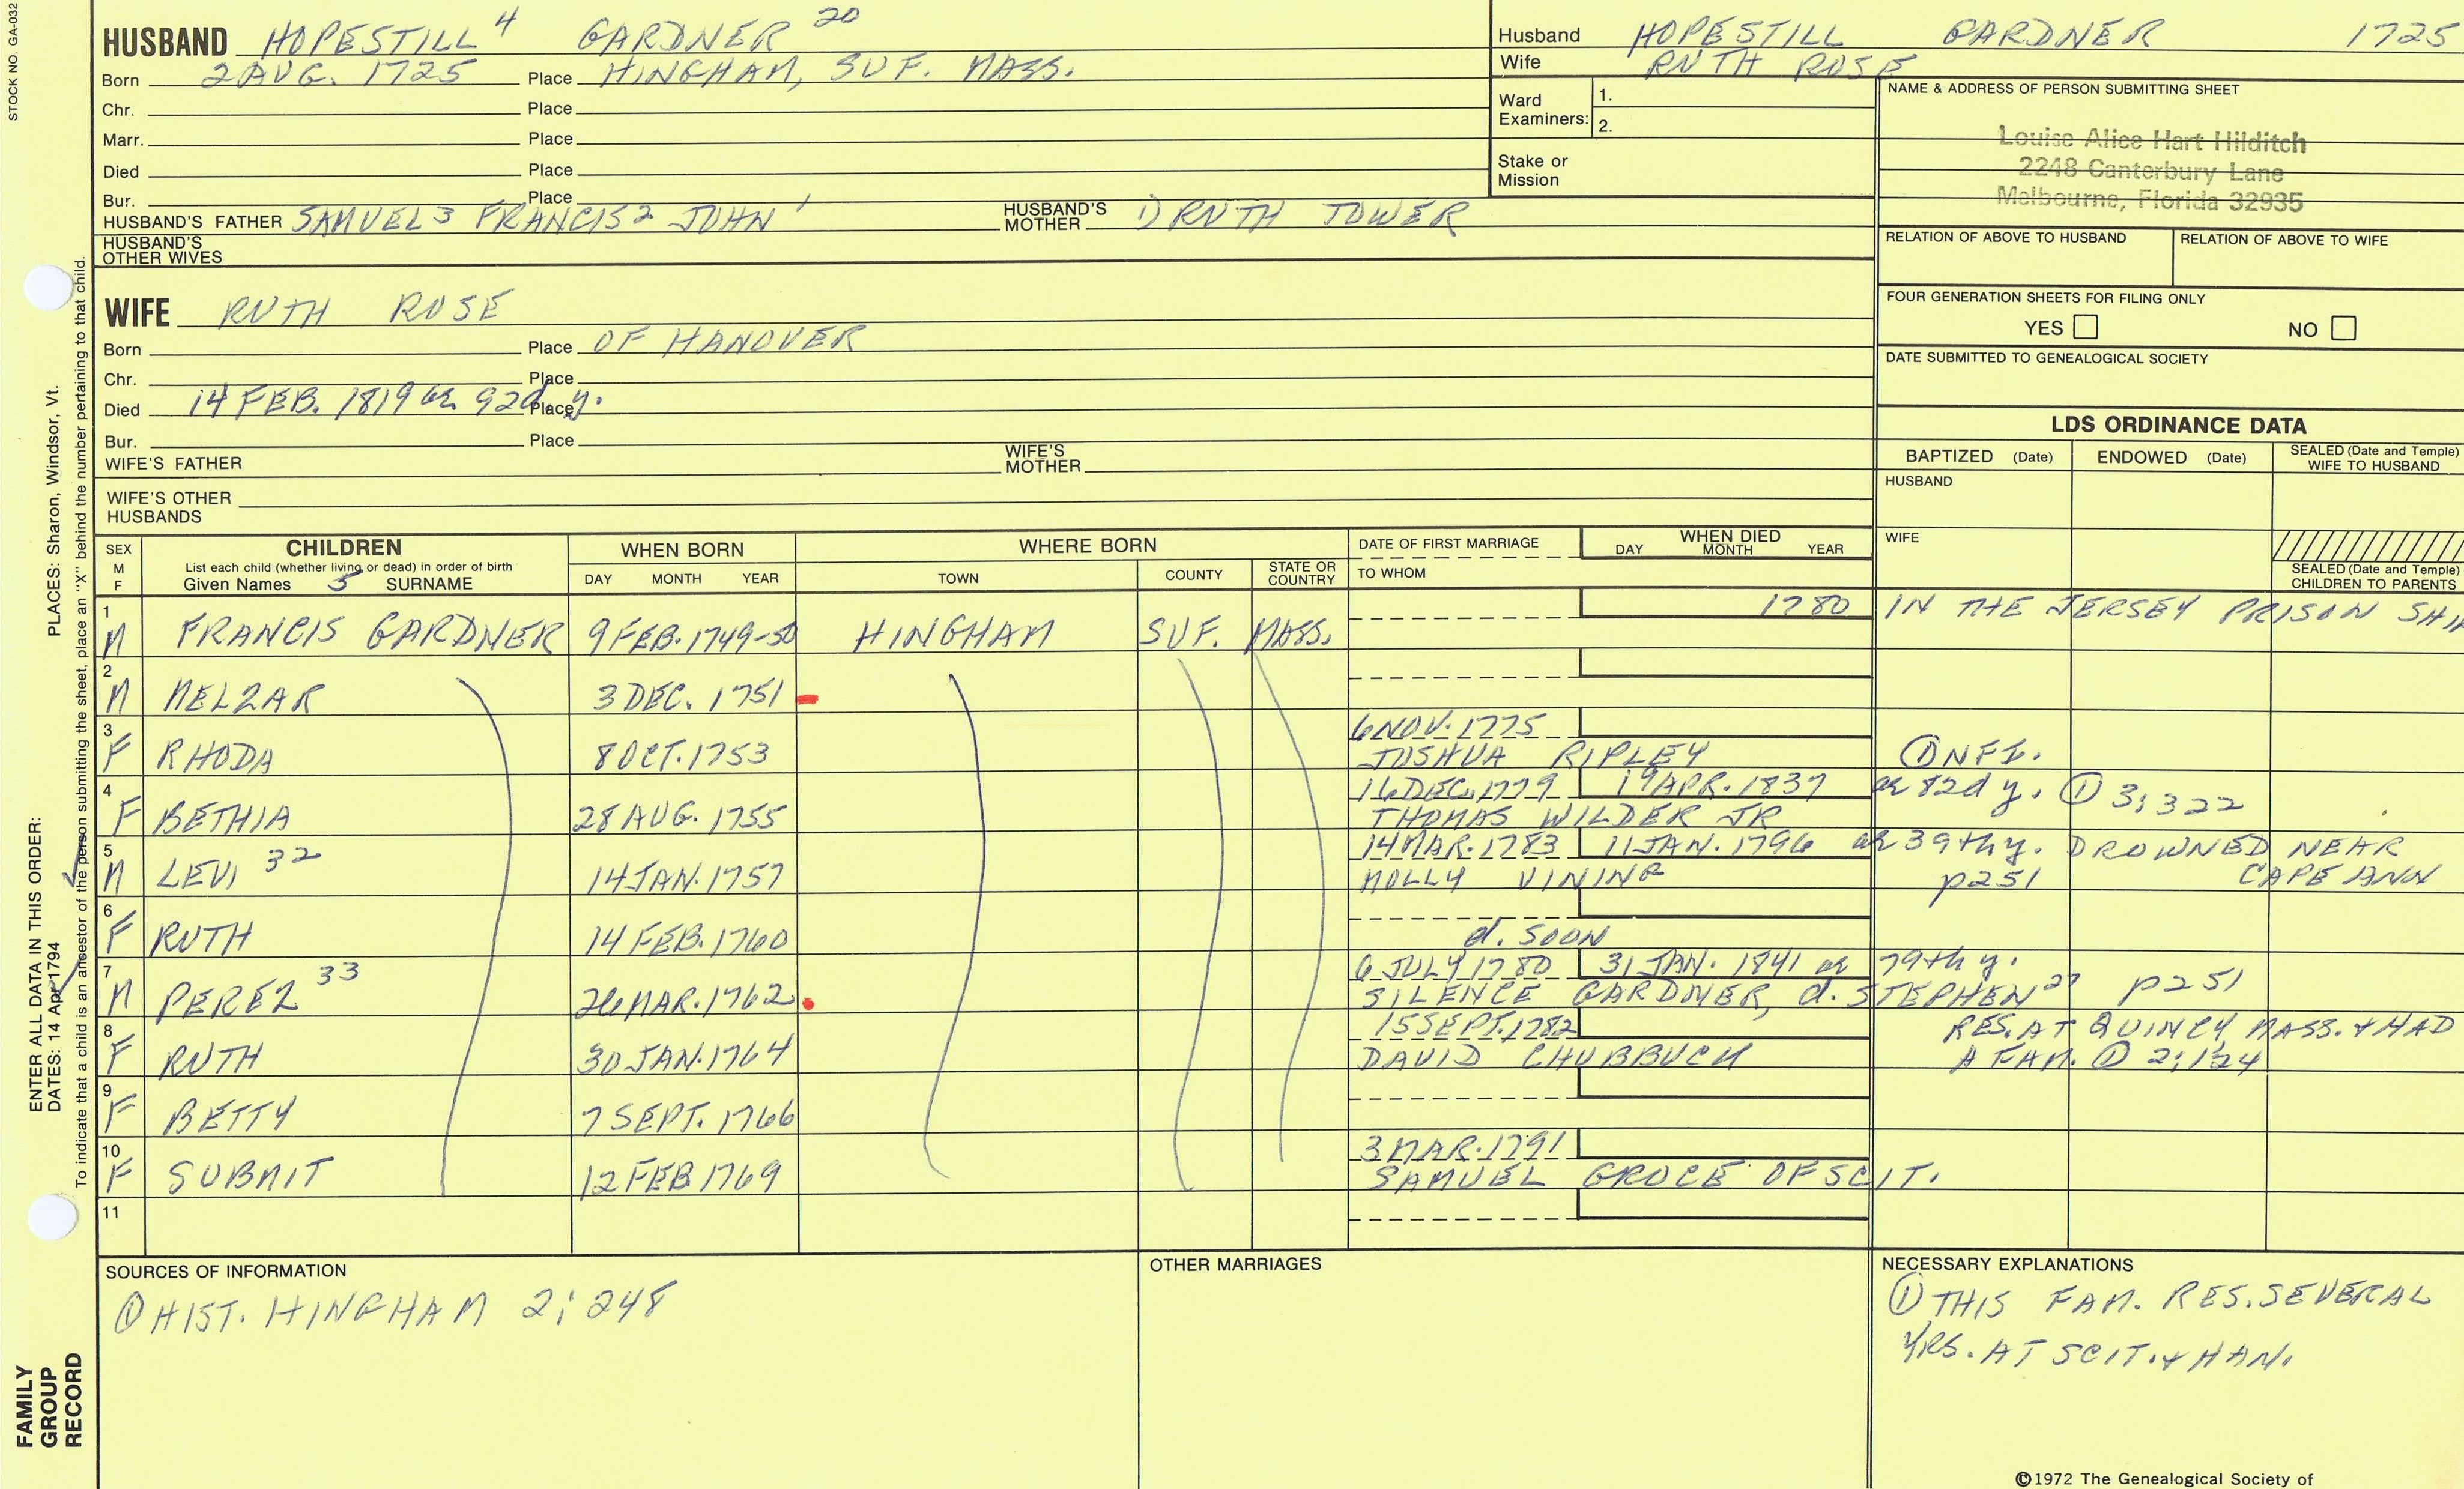 STOCK NO. GA-032
HUSBAND HOPESTILL 4 GARDNER 20
Born 2 AUG. 1725 Place HINGHAM, SUF. MASS.
Chr. Place
Marr. Place
Died Place
Bur. Place
HUSBAND'S FATHER SAMUEL 3 FRANCIS 2 JOHN 1 HUSBAND'S MOTHER ① RUTH TOWER
HUSBAND'S OTHER WIVES
Husband HOPESTILL GARDNER 1725
Wife RUTH ROSE
Ward Examiners: 1.
2.
Stake or Mission
NAME & ADDRESS OF PERSON SUBMITTING SHEET
Louise Alice Hart Hilditch
2248 Canterbury Lane
Melbourne, Florida 32935
RELATION OF ABOVE TO HUSBAND RELATION OF ABOVE TO WIFE
FOUR GENERATION SHEETS FOR FILING ONLY
YES NO
DATE SUBMITTED TO GENEALOGICAL SOCIETY
WIFE RUTH ROSE
Born Place OF HANOVER
Chr. Place
Died 14 FEB. 1819 ae 92d y. Place
Bur. Place
WIFE'S FATHER WIFE'S MOTHER
WIFE'S OTHER HUSBANDS
LDS ORDINANCE DATA
BAPTIZED (Date) ENDOWED (Date) SEALED (Date and Temple) WIFE TO HUSBAND
HUSBAND
WIFE
SEALED (Date and Temple) CHILDREN TO PARENTS
SEX M F CHILDREN WHEN BORN WHERE BORN DATE OF FIRST MARRIAGE WHEN DIED
List each child (whether living or dead) in order of birth
Given Names 5 SURNAME DAY MONTH YEAR TOWN COUNTY STATE OR COUNTRY TO WHOM DAY MONTH YEAR
1 M FRANCIS GARDNER 9 FEB. 1749-50 HINGHAM SUF. MASS. 1780 IN THE JERSEY PRISON SHIP
2 M MELZAR 3 DEC. 1751
3 F RHODA 8 OCT. 1753 6 NOV. 1775
JOSHUA RIPLEY ① NFI.
4 F BETHIA 28 AUG. 1755 16 DEC. 1779 19 APR. 1837 ae 82d y. ① 3; 322
THOMAS WILDER JR
5 M LEVI 32 14 JAN. 1757 14 MAR. 1783 11 JAN. 1796 ae 39th y. DROWNED NEAR
MOLLY VINING p251 CAPE ANN
6 F RUTH 14 FEB. 1760 d. SOON
7 M PEREZ 33 26 MAR. 1762 6 JULY 1780 31 JAN. 1841 ae 79th y.
SILENCE GARDNER, d. STEPHEN 27 p251
8 F RUTH 30 JAN. 1764 15 SEPT. 1782 RES. AT QUINCY MASS. & HAD
DAVID CHUBBUCK A FAM. ① 2; 124
9 F BETTY 7 SEPT. 1766
10 F SUBMIT 12 FEB 1769 3 MAR. 1791
SAMUEL GROCE OF SCIT.
11
SOURCES OF INFORMATION
① HIST. HINGHAM 2; 248
OTHER MARRIAGES
NECESSARY EXPLANATIONS
① THIS FAM. RES. SEVERAL
YRS. AT SCIT. & HAN.
©1972 The Genealogical Society of
ENTER ALL DATA IN THIS ORDER:
DATES: 14 Apr 1794 PLACES: Sharon, Windsor, Vt.
To indicate that a child is an ancestor of the person submitting the sheet, place an "X" behind the number pertaining to that child.
FAMILY
GROUP
RECORD